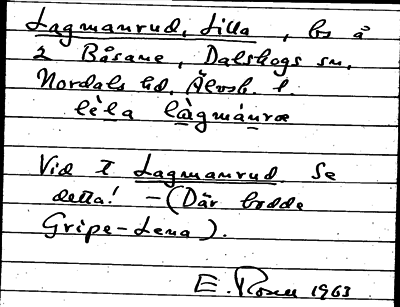 Lagmansrud, Lilla, bs å
2 Råsane, Dalskogs sn,
Nordals hd, Älvsb. l.
lèla làgmánræ
Vid t Lagmansrud Se
detta! – (Där bodde
Gripe-Lena).
E. Rosen 1963